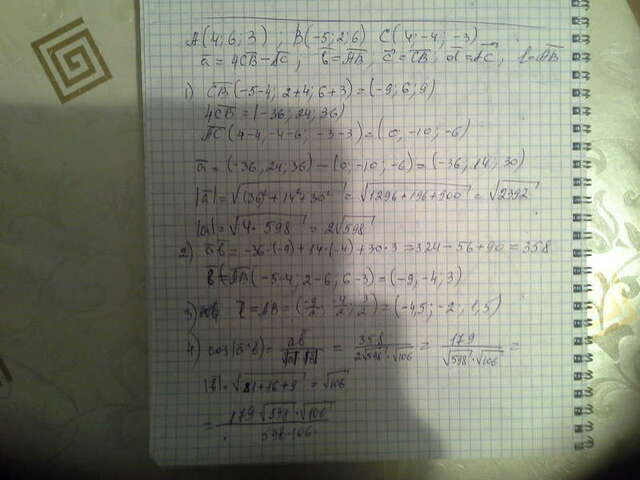 A(4; 6; 3) ; B(-5; 2; 6) C(4; -4; -3)
a̅ = 4C̅B̅ - A̅C̅ ; b̅ = A̅B̅, c̅ = C̅B̅, d̅ = A̅C̅, l = A̅B̅
1) C̅B̅(-5-4; 2+4; 6+3) = (-9; 6; 9)
4C̅B̅ = (-36; 24; 36)
A̅C̅(4-4, -4-6; -3-3) = (0, -10; -6)
a̅ = (-36, 24; 36) - (0; -10; -6) = (-36, 14; 30)
|a̅| = √(36² + 14² + 30²) = √(1296+196+900) = √2392
|a| = √(4 · 598) = 2√598
2) a̅b̅ = -36·(-9) + 14·(-4) + 30·3 = 324 - 56 + 90 = 358
b̅ = A̅B̅(-5-4; 2-6; 6-3) = (-9; -4; 3)
3) l̅ = AB = (-9/2; -4/2; 3/2) = (-4,5; -2; 1,5)
4) cos(a̅^b̅) = ab/|a|·|b| = 358/2√598·√106 = 179/√598·√106 =
|b| = √(81+16+9) = √106
= 179√598·√106/598·106